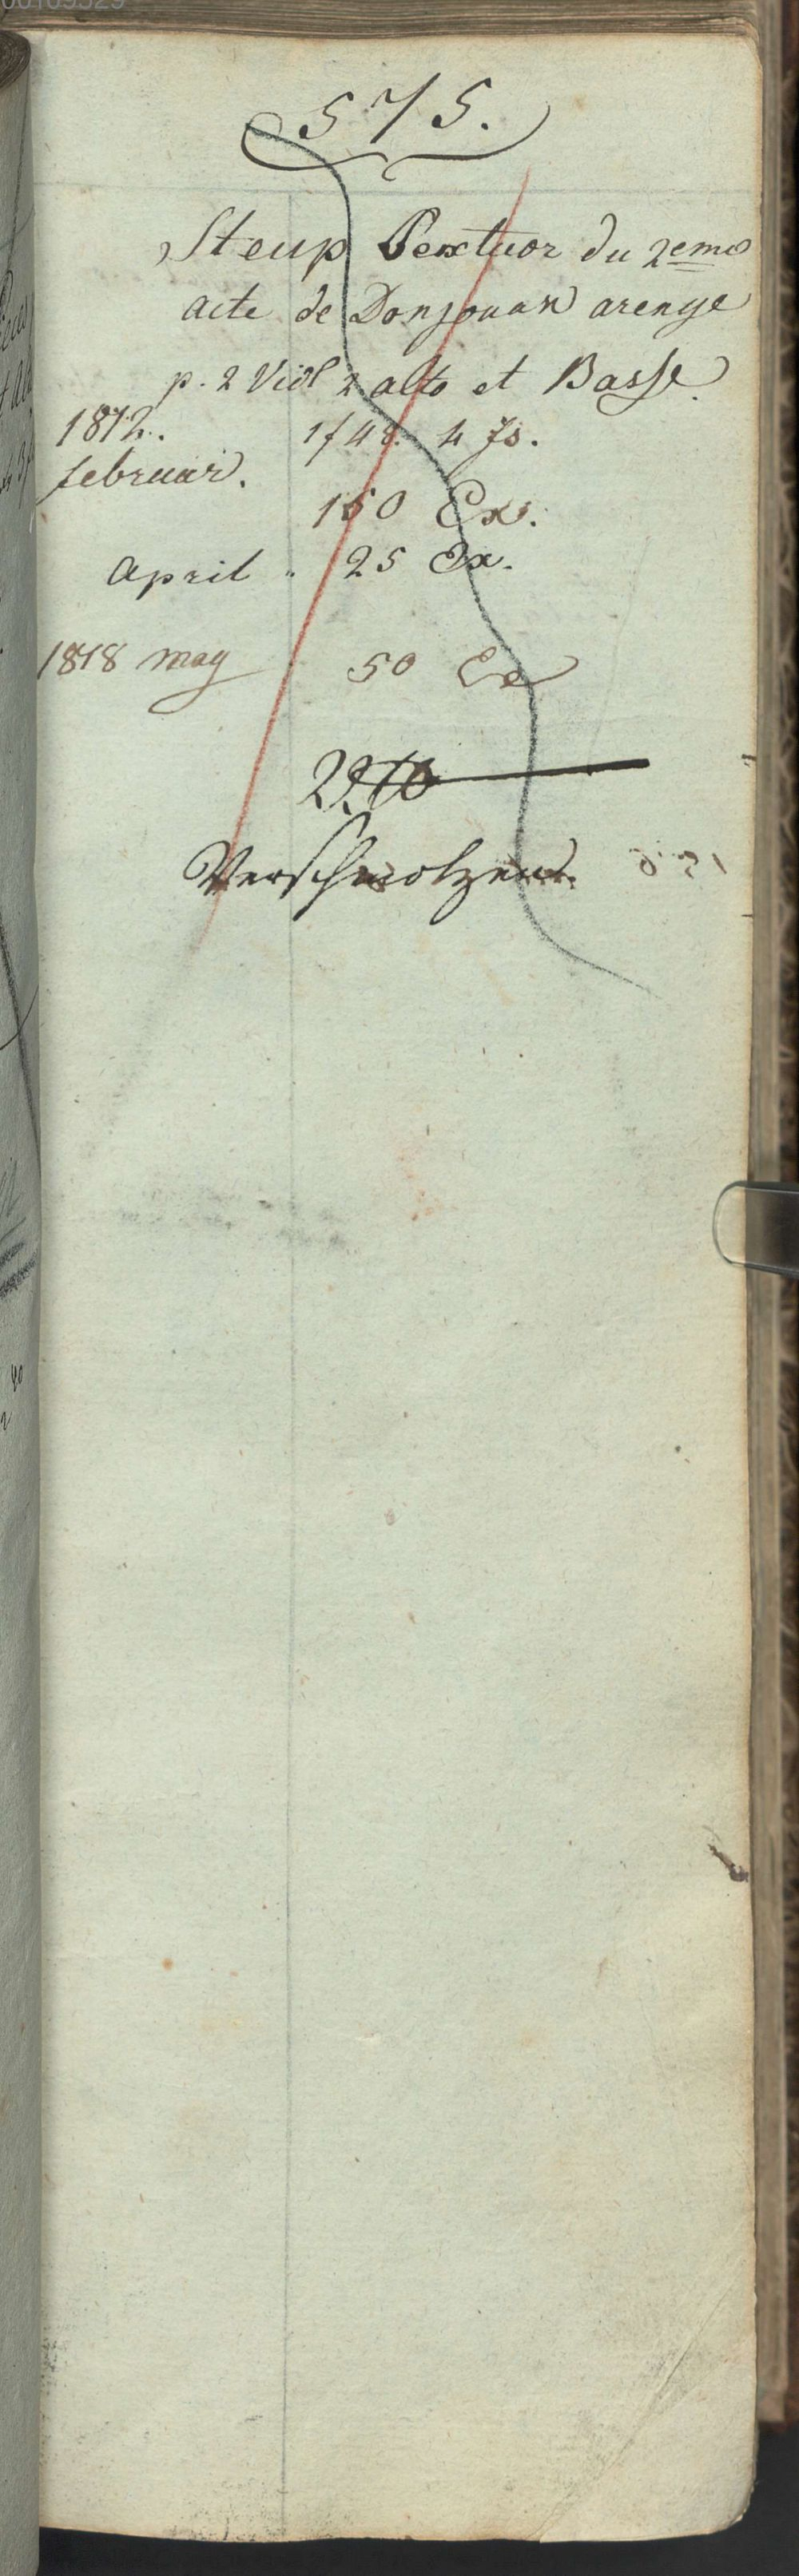 575.
Steup Sextuor du 2eme
acte de Donjouan arenge
p. 2 Viol 2 alto et Basse.
1812. 1f 48. 4 fs.
februar.
150 Ex.
April " 25 Ex.
1818 may 50 Ex
Verschmolzen.